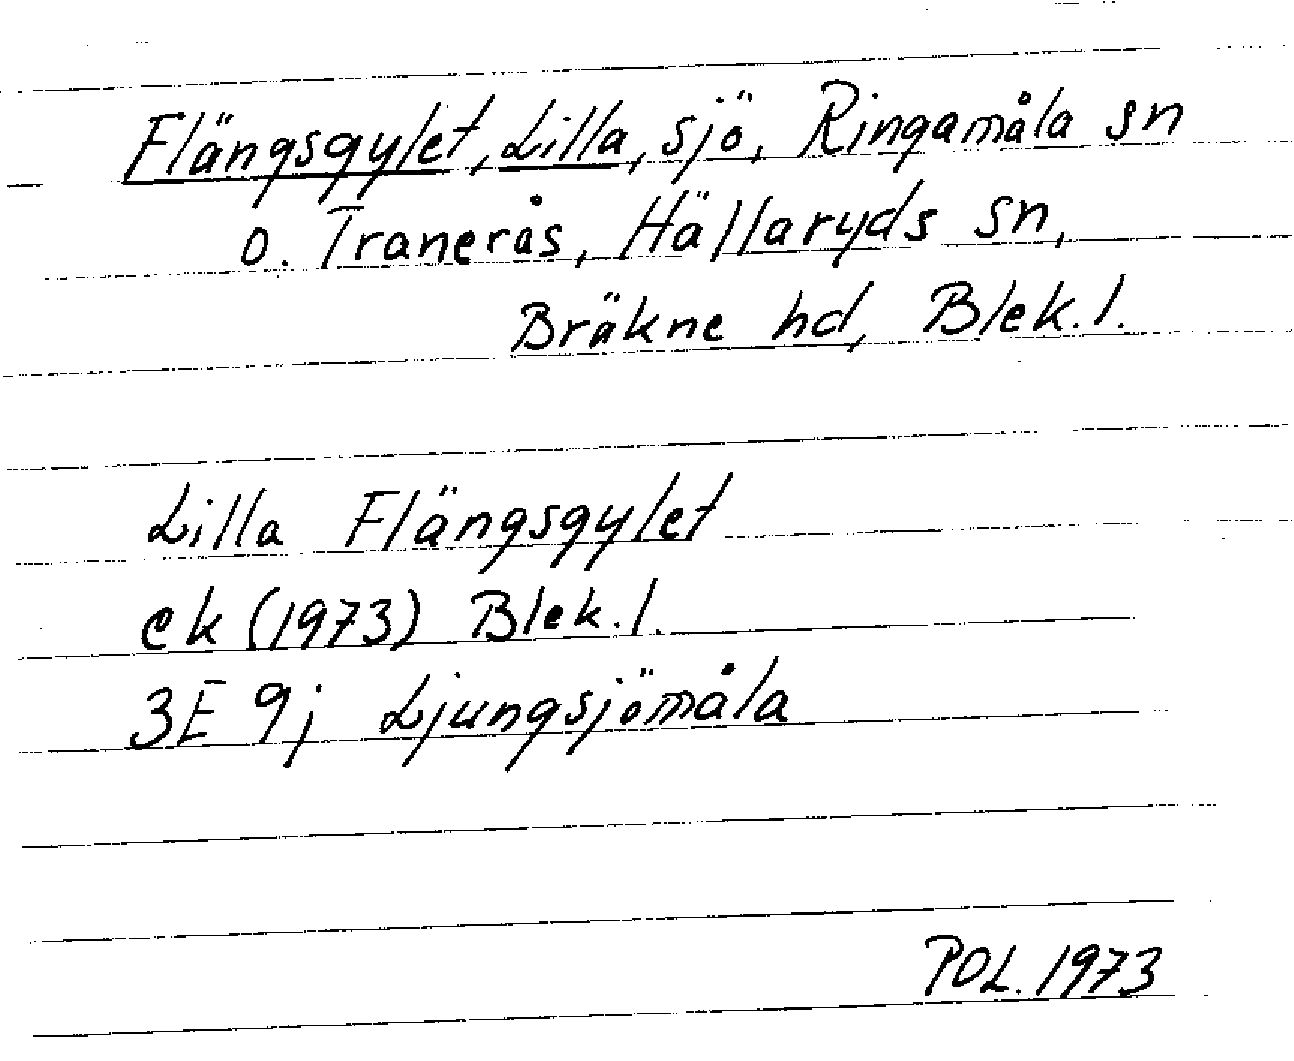 Flängsgylet, Lilla, sjö, Ringamåla sn
o. Tranerås, Hällaryds sn,
Bräkne hd, Blek. l.
Lilla Flängsgylet
ek (1973) Blek. l.
3E 9j Ljungsjömåla
POL. 1973